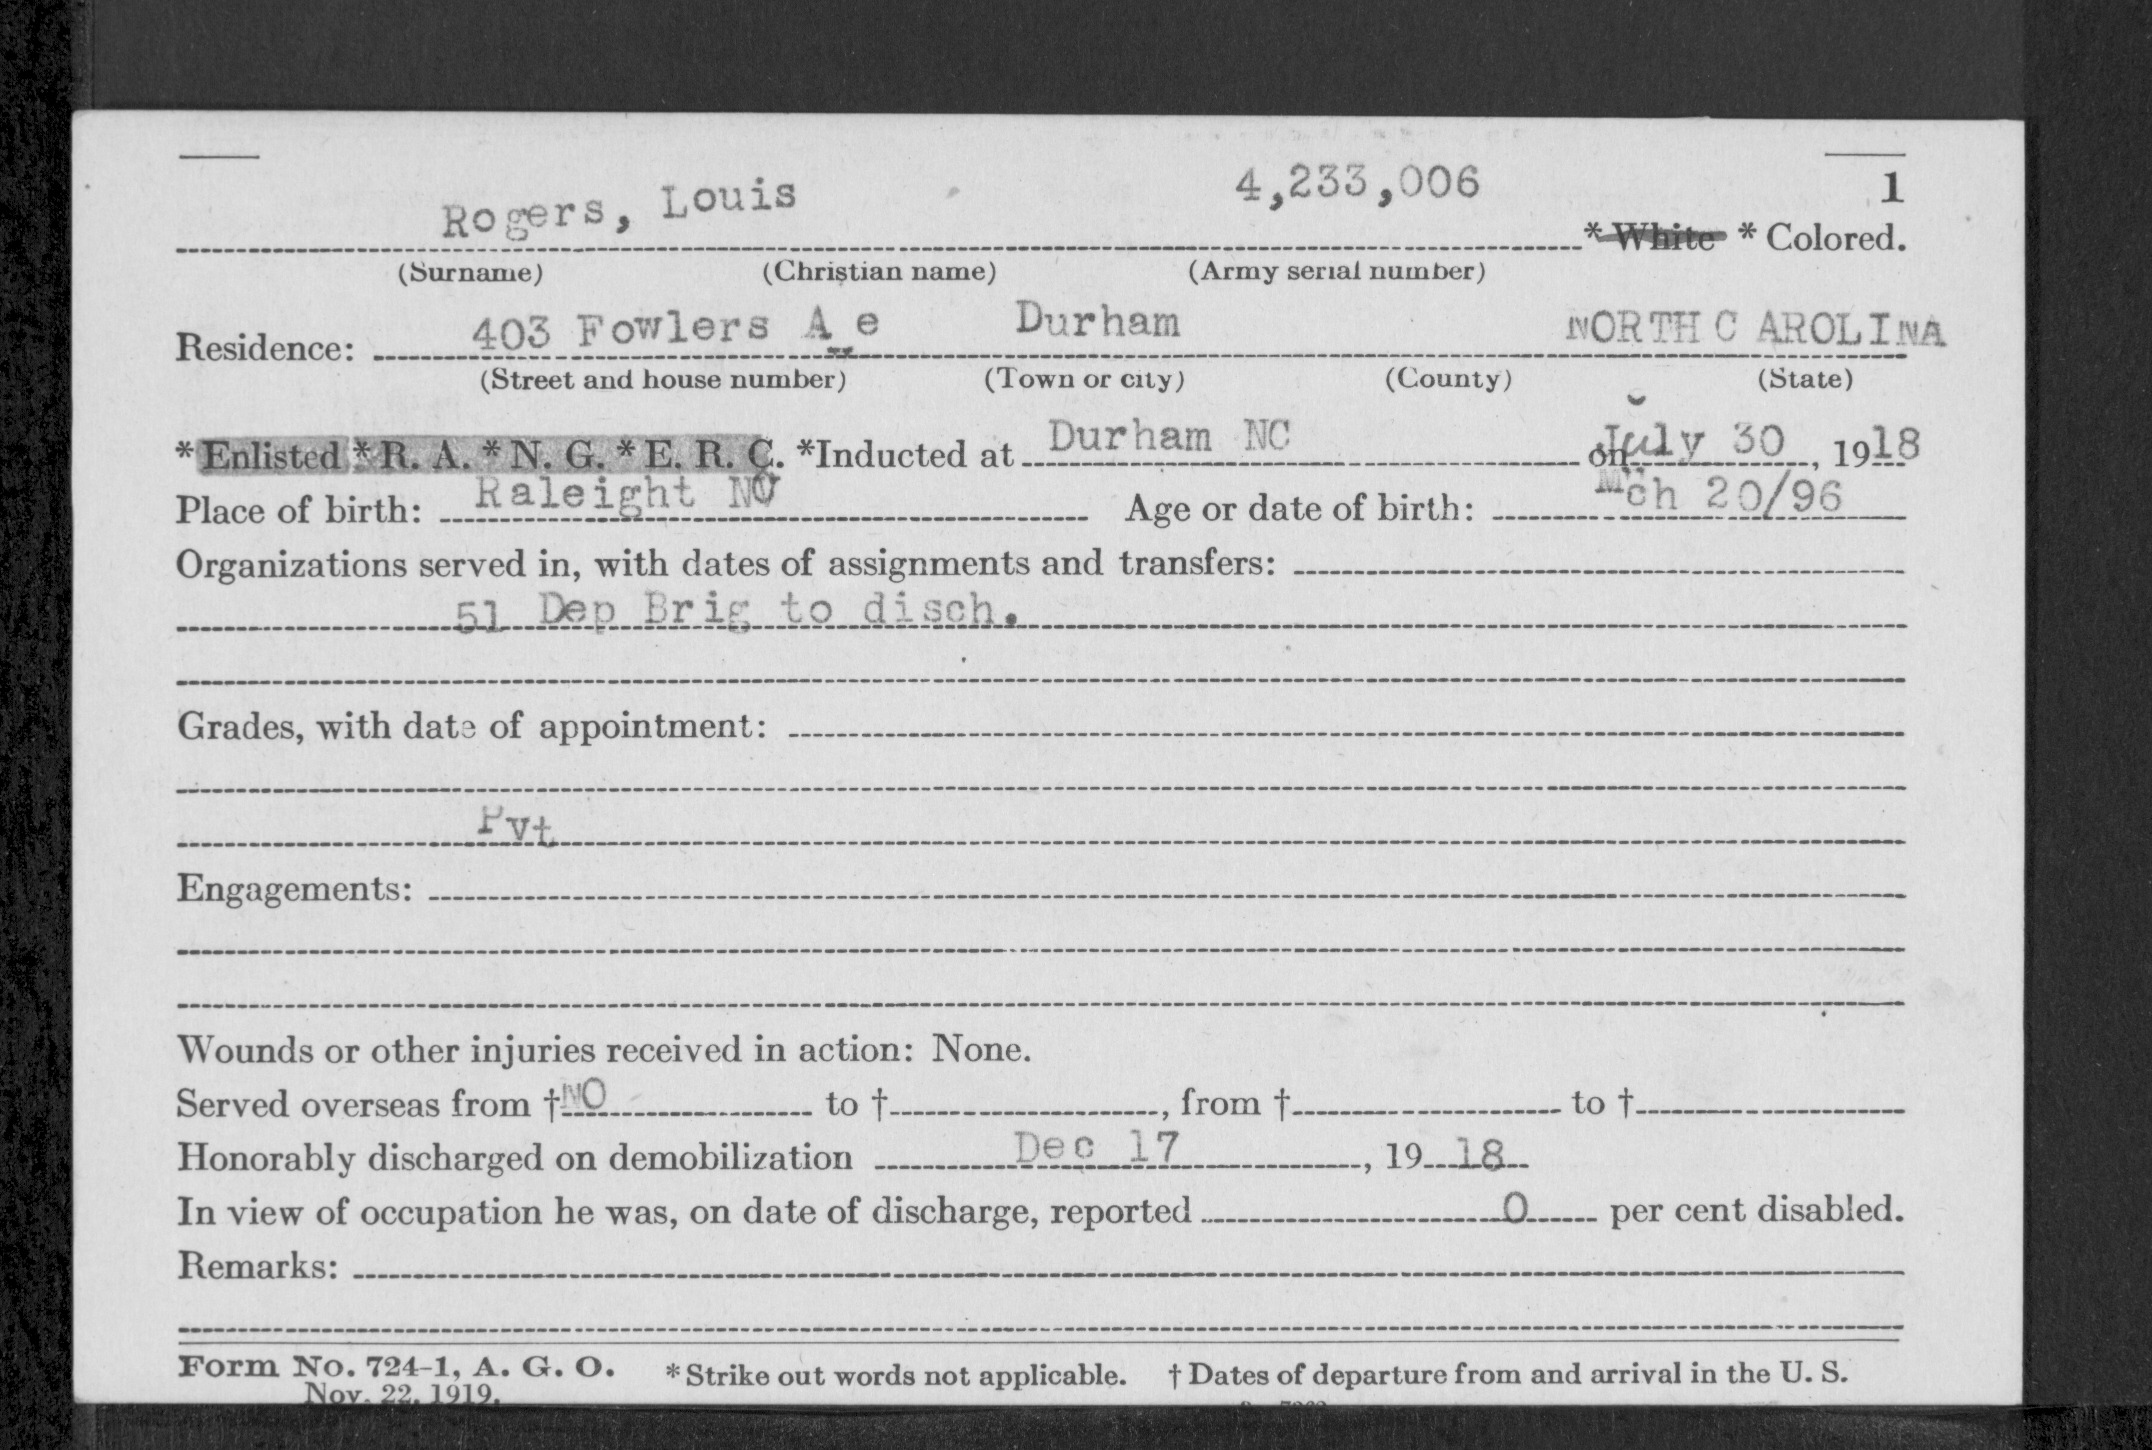 Rogers, Louis 4,233,006 1
* White * Colored.
(Surname) (Christian name) (Army serial number)
Residence: 403 Fowlers A e Durham NORTH CAROLINA
(Street and house number) (Town or city) (County) (State)
*Enlisted *R. A. *N. G. *E. R. C. *Inducted at Durham NC on July 30, 1918
Place of birth: Raleight NC Age or date of birth: Mch 20/96
Organizations served in, with dates of assignments and transfers:
51 Dep Brig to disch.
Grades, with date of appointment:
Pvt
Engagements:
Wounds or other injuries received in action: None.
Served overseas from †NO to †, from † to †
Honorably discharged on demobilization Dec 17, 19 18
In view of occupation he was, on date of discharge, reported 0 per cent disabled.
Remarks:
Form No. 724-1, A. G. O. *Strike out words not applicable. † Dates of departure from and arrival in the U. S.
Nov. 22, 1919.